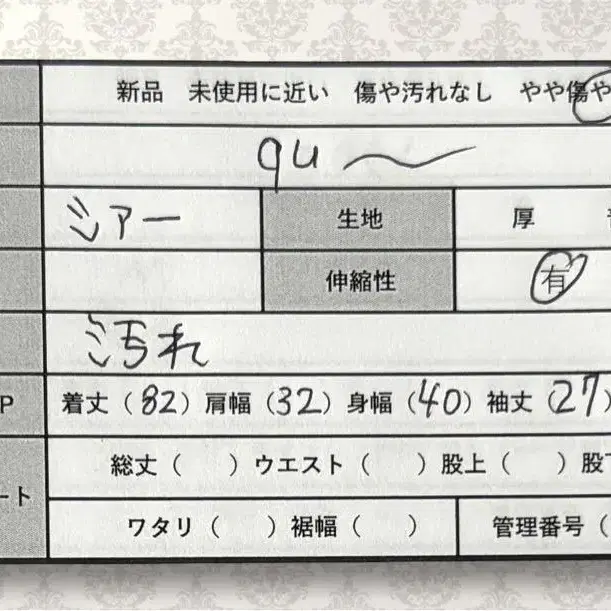 新品 未使用に近い 傷や汚れなし やや傷や
qu〜
シアー 生地 厚
伸縮性 有
汚れ
P 着丈（82）肩幅（32）身幅（40）袖丈（27）
総丈（ ）ウエスト（ ）股上（ ）股下
ート
ワタリ（ ）裾幅（ ） 管理番号（